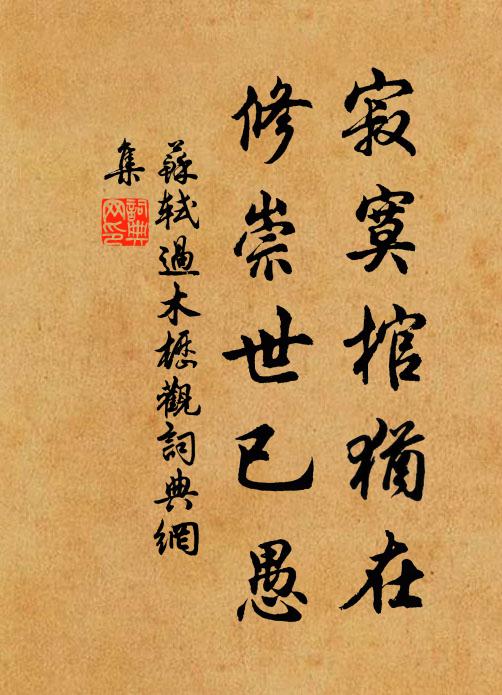 寂寞棺猶在
修崇世已愚
蘇軾過木櫪觀詞典網
集
詞典網印